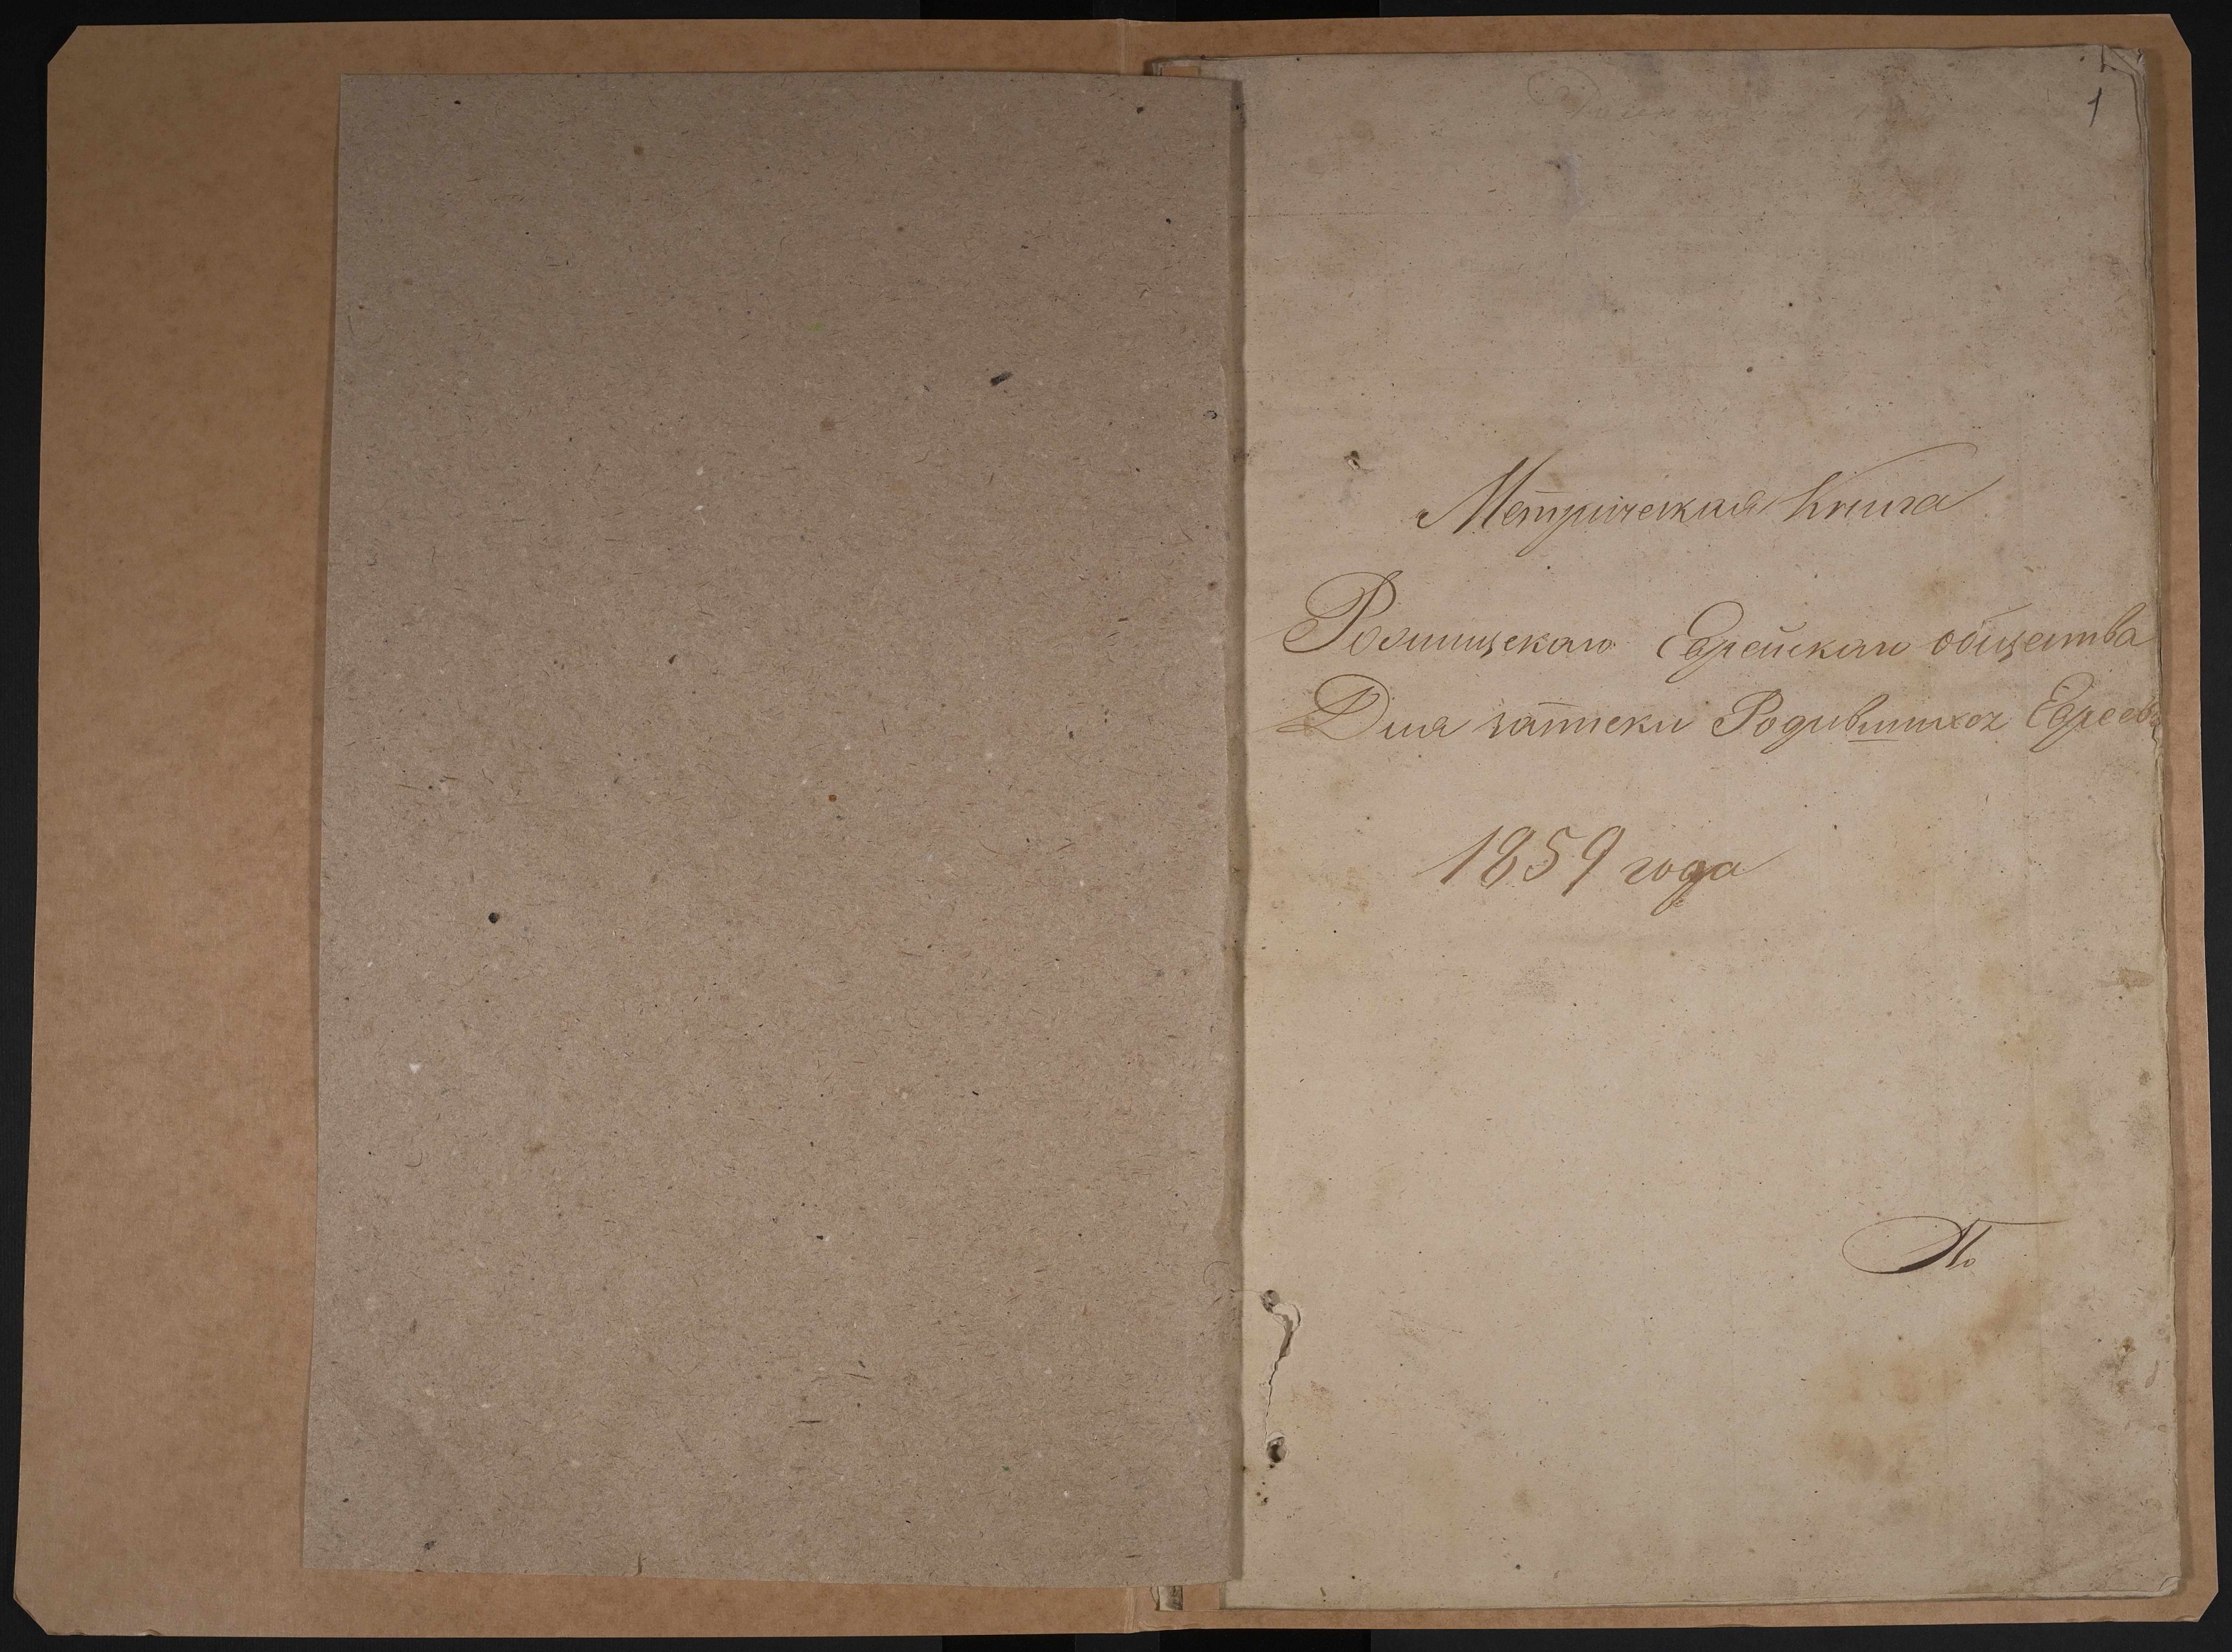 1
Метрическая Книга
Рожищскаго Еврейскаго общества
Для записки Родившихся Евреевъ
1859 года
По